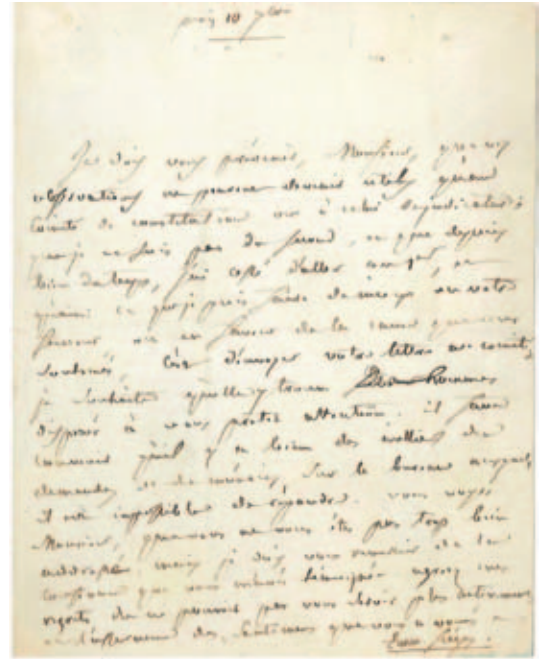 10 7bre
Je dois vous prévenir, Monsieur, que vos
observations ne peuvent devenir utiles qu'au
Comité de constitution ou à celui
que je ne suis pas du second, et que depuis
bien du temps, j'ai cessé d'aller au 1er, et
ce que je puis faire de mieux
faveur ou en faveur de la cause que vous
est d'envoyer votre lettre au comité,
je souhaite qu'elle y trouve des hommes
disposés à vous prêter attention. il faut
convenir qu'il y a bien des milliers de
demandes et de mémoires, sur le bureau
il est impossible de répondre. vous voyez
Monsieur, que vous ne vous êtes pas trop bien
adressé mais je dois vous remercier de la
confiance que vous m'avez témoignée agréez mes
regrets de ne pouvoir pas vous plus
des sentimens que vous a voués